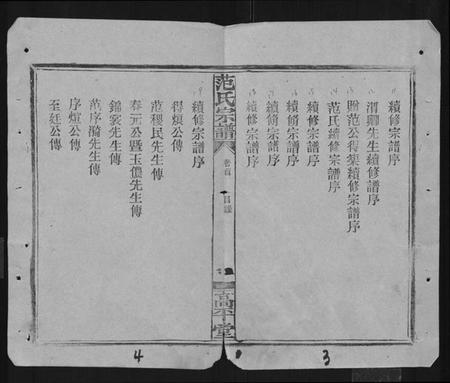 續修宗譜序
渭卿先生續修譜序
贈范公得榮續修宗譜序
范氏續修宗譜序
續修宗譜序
續脩宗譜序
續脩宗譜序
續修宗譜序
范氏宗譜
卷首
目錄
高平堂
續修宗譜序
得煩公傳
范稷民先生傳
春元公暨玉儂先生傳
錦裳先生傳
范序漪先生傳
序煊公傳
至廷公傳
3
4